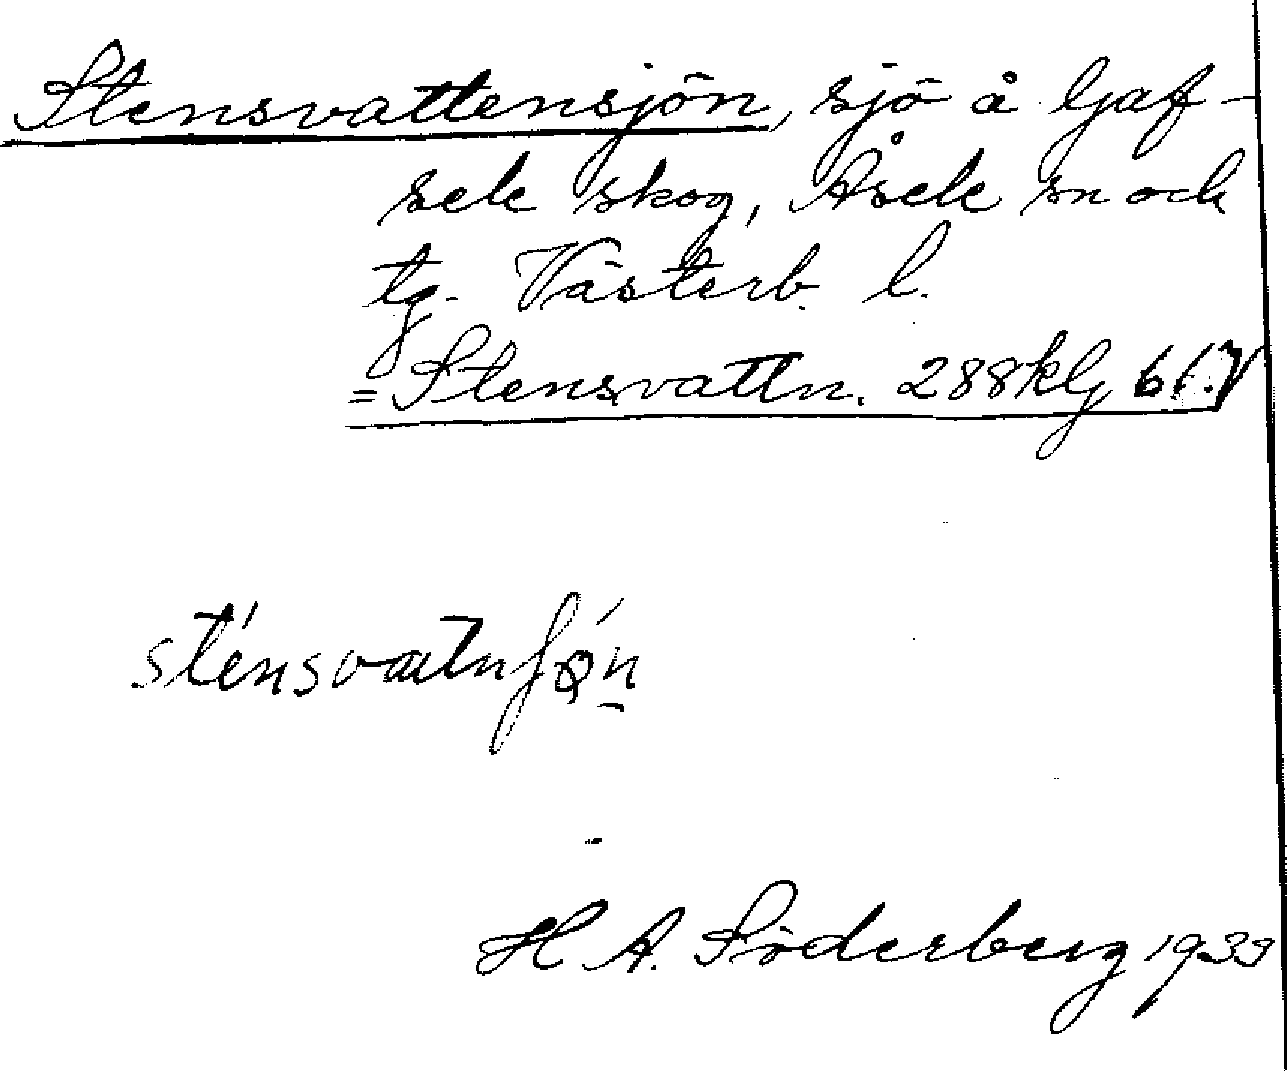 Stensvattensjön, sjö å Gaf-
sele skog, Åsele sn och
tg. Västerb. l.
= Stensvattn. 288klj 61.V
sténsvatnʃǿn
H A. Söderberg 1933